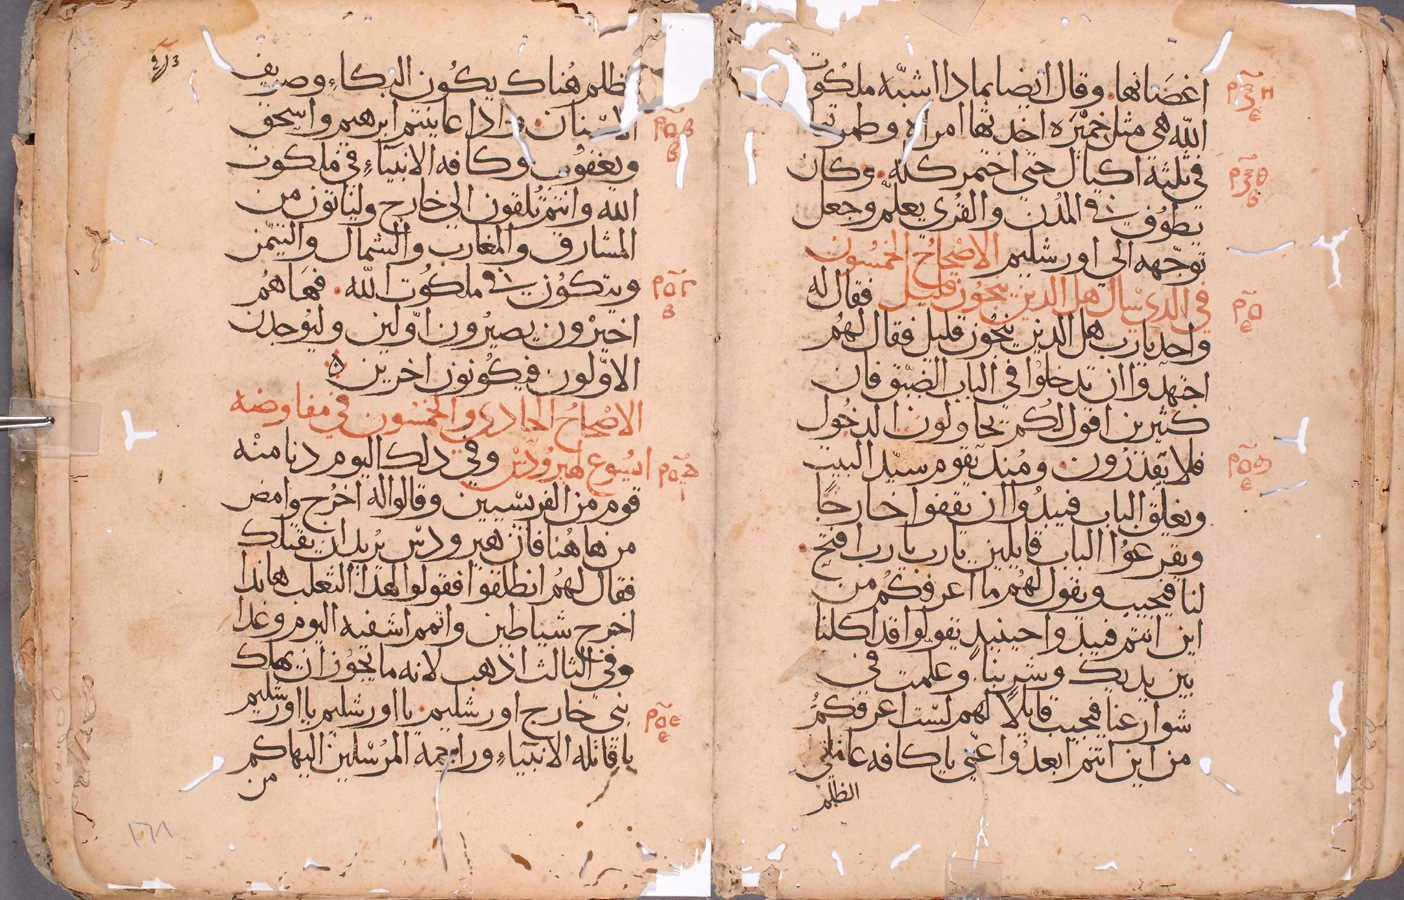 اغصانها. وقال ايضا بماذا اشبّه ملكوت
اللّه هي مثل خميْرَه اخذتها امراه وطمرتها
في ثلثة اكيال حتى اختمر كله. وكان
يطوُف في المُدن والقُرى يعلّم وجعل
توجّهه الي اورشليم الاصْحاحُ الخمسُون
في الذي سال هل الذين ينجُون قليل فقال له
واحد يارب هل الذين ينجُون قليل فقال لهُم
اجتهدوا ان تدخلوا في الباب الضيّق فان
كثيرين اقول لكُم يحاولون الدخُول
فلا يقدرُون. ومُنذ يقوم سيّد البيت
ويغلق الباب فيبدُوا ان تقفوا خارجًا
وتقرعوُا الباب قايلين يارب يارب افتح
لنا فيجيب ويقول لهُم ما اعرفكُم من
اين انتم فيبدوا حينيذٍ تقولوا قد اكلنا
بين يديك وشربنا. وعلمت في
شوارعنا فيجيب قايلًا لهم لسْت اعرفكمُ
من اين انتم ابعدُوا عنّي ياكافه عاملي
الظلم
الظلم هُناك يكوُن البكاء وصريف
الاسْنان. واذا عاينتم ابرهيم واسحق
ويعقوُب وكافه الانبيَاءِ في ملكوت
الله وانتم تُلقون الى خارج ولياتون من
المشارق والمغارب والشمال واليمَن
ويتكوُن في ملكوُت اللّه. فهَاهُم
اخيرْون يصيرُون اوّلين وليوجدن
الاوّلون فيكوُنون اخرين ه
الاصْحاحُ الحادي والخمسُون في مفاوضه
ايسُوع لهيروُدسْ وفي ذلك اليوم دنا منْه
قوم من الفريسْيين وقالوا له اخرُج وامض
من هاهُنا فان هيرودسّ يرُيد ان يقتلك
فقال لهُم انطلقوا فقولوا لهذا الثعلب هانذا
اخرج شياطين واتمم اشفيه اليوم وغدا
وفي الثالث اذهب لانه ما يجوُز ان يهلك
نبي خارج اورشليم. يا اورشليم يا اورشليم
يا قاتله الانبيَاءِ وراجمه المرُسْلين اليها كم
من